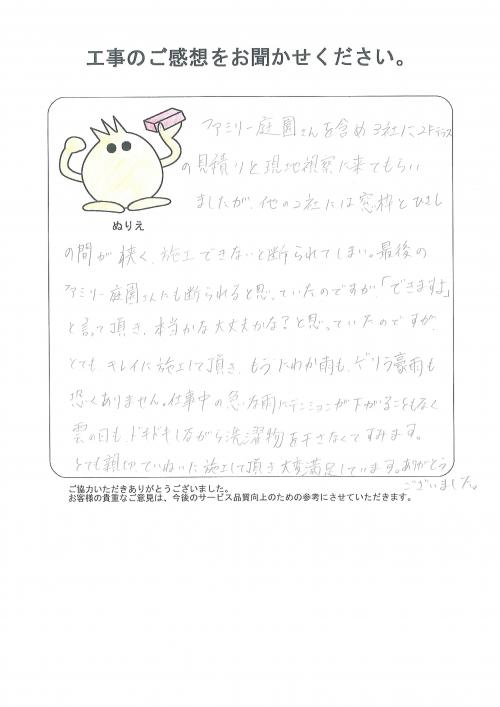 工事のご感想をお聞かせください。
ファミリー庭園さんを含め3社に、2Fテラス
の見積りと現地視察に来てもらい
ましたが、他の2社には窓枠とひさし
の間が狭く、施工できないと断られてしまい。最後の
ファミリー庭園さんにも断られると思っていたのですが「できますよ」
と言って頂き、本当かな大丈夫かな？と思っていたのですが、
とても、キレイに施工して頂き、もうにわか雨も、ゲリラ豪雨も
恐くありません。仕事中の急な雨にテンションが下がることもなく
雲の日も、ドキドキしながら洗濯物を干さなくてすみます。
とても親切でていねいに施工して頂き大変満足しています。ありがとう
ございました。
ぬりえ
ご協力いただきありがとうございました。
お客様の貴重なご意見は、今後のサービス品質向上のための参考にさせていただきます。